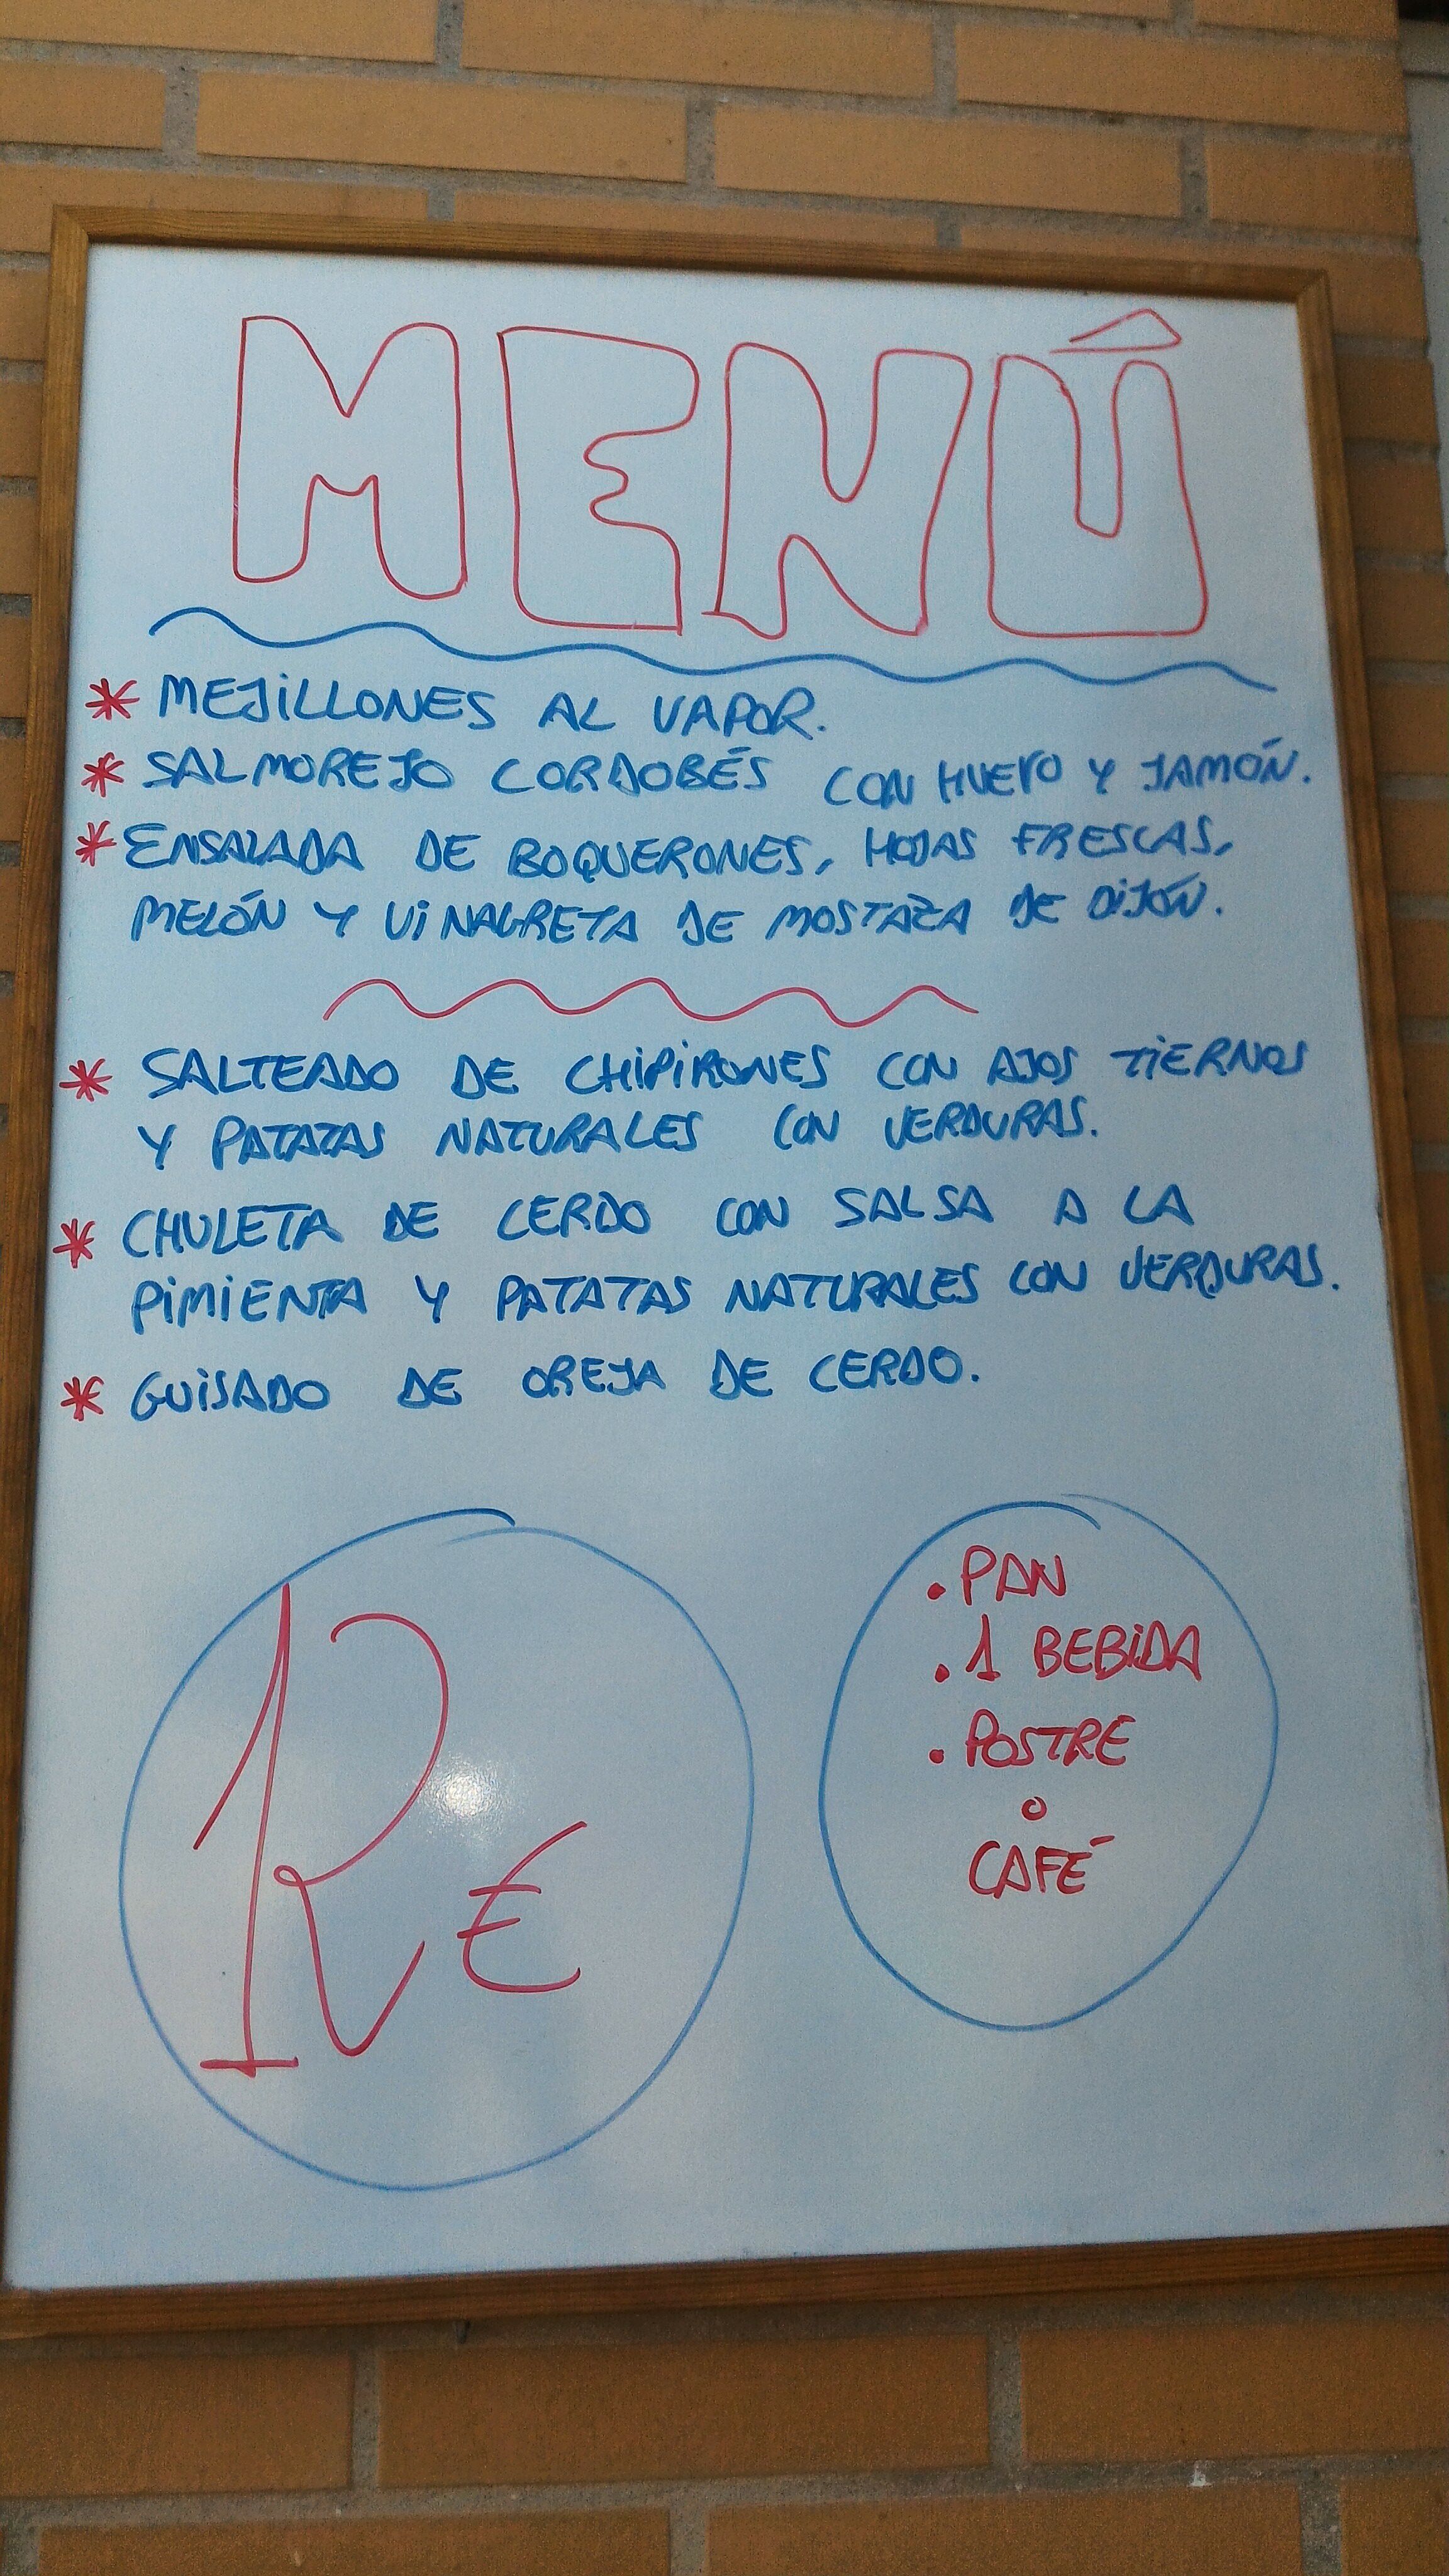 MENÚ
* MEJILLONES AL VAPOR.
* SALMOREJO CORDOBÉS CON HUEVO Y JAMÓN.
* ENSALADA DE BOQUERONES, HOJAS FRESCAS,
MELÓN Y VINAGRETA DE MOSTAZA DE DIJÓN.
* SALTEADO DE CHIPIRONES CON AJOS TIERNOS
Y PATATAS NATURALES CON VERDURAS.
* CHULETA DE CERDO CON SALSA A LA
PIMIENTA Y PATATAS NATURALES CON VERDURAS.
* GUISADO DE OREJA DE CERDO.
12 €
. PAN
. 1 BEBIDA
. POSTRE
o
CAFÉ